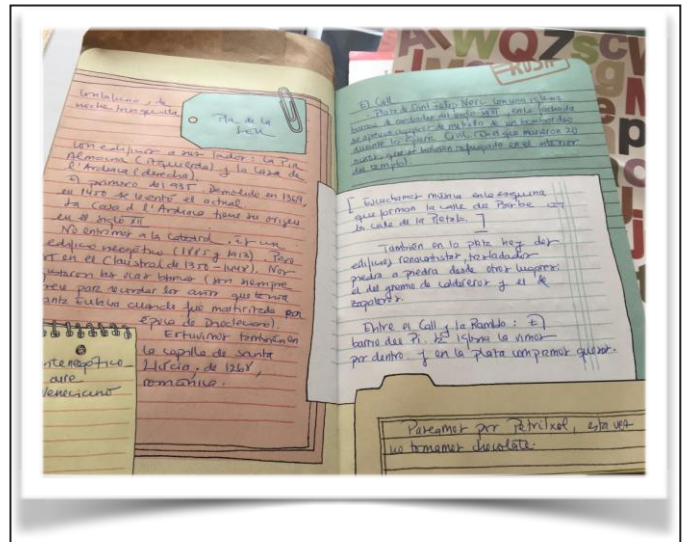 noche tranquila
Pla de la
SEU
con edificios a sus lados: La Pia
Almoina (izquierda) y la casa de
l'Ardiaca (derecha).
El primero del 935. Demolido en 1369,
en 1450 se levantó el actual.
La Casa de l'Ardiaca tiene su origen
en el siglo XII
No entramos a la Catedral. Es un
edificio neogótico (1885 y 1913). Pero
en el Claustro
gustaron las ocas blancas (son siempre
trece para recordar los años que tenía
Santa Eulalia cuando fue martirizada por
época de Diocleciano).
Estuvimos también en
la capilla de santa
Llúcia, de 1268,
románica.
aire
veneciano
El Call
Plaza de Sant Felip Neri. Con una iglesia
barroca
durante la Guerra Civil, en el que murieron 20
que se habían refugiado en el interior
del templo).
[ Escuchamos música en la esquina
que forman la calle de Bisbe con
la calle de la Pietat. ]
También en la plaza hay dos
edificios renacentistas, trasladados
piedra a piedra desde otros lugares:
el del gremio de caldereros y el de
zapateros.
Entre el Call y la Rambla: El
barrio del Pi. La iglesia la vimos
por dentro y en la plaza compramos quesos.
Paseamos por Petritxol, esta vez
no tomamos chocolate.
RUSH